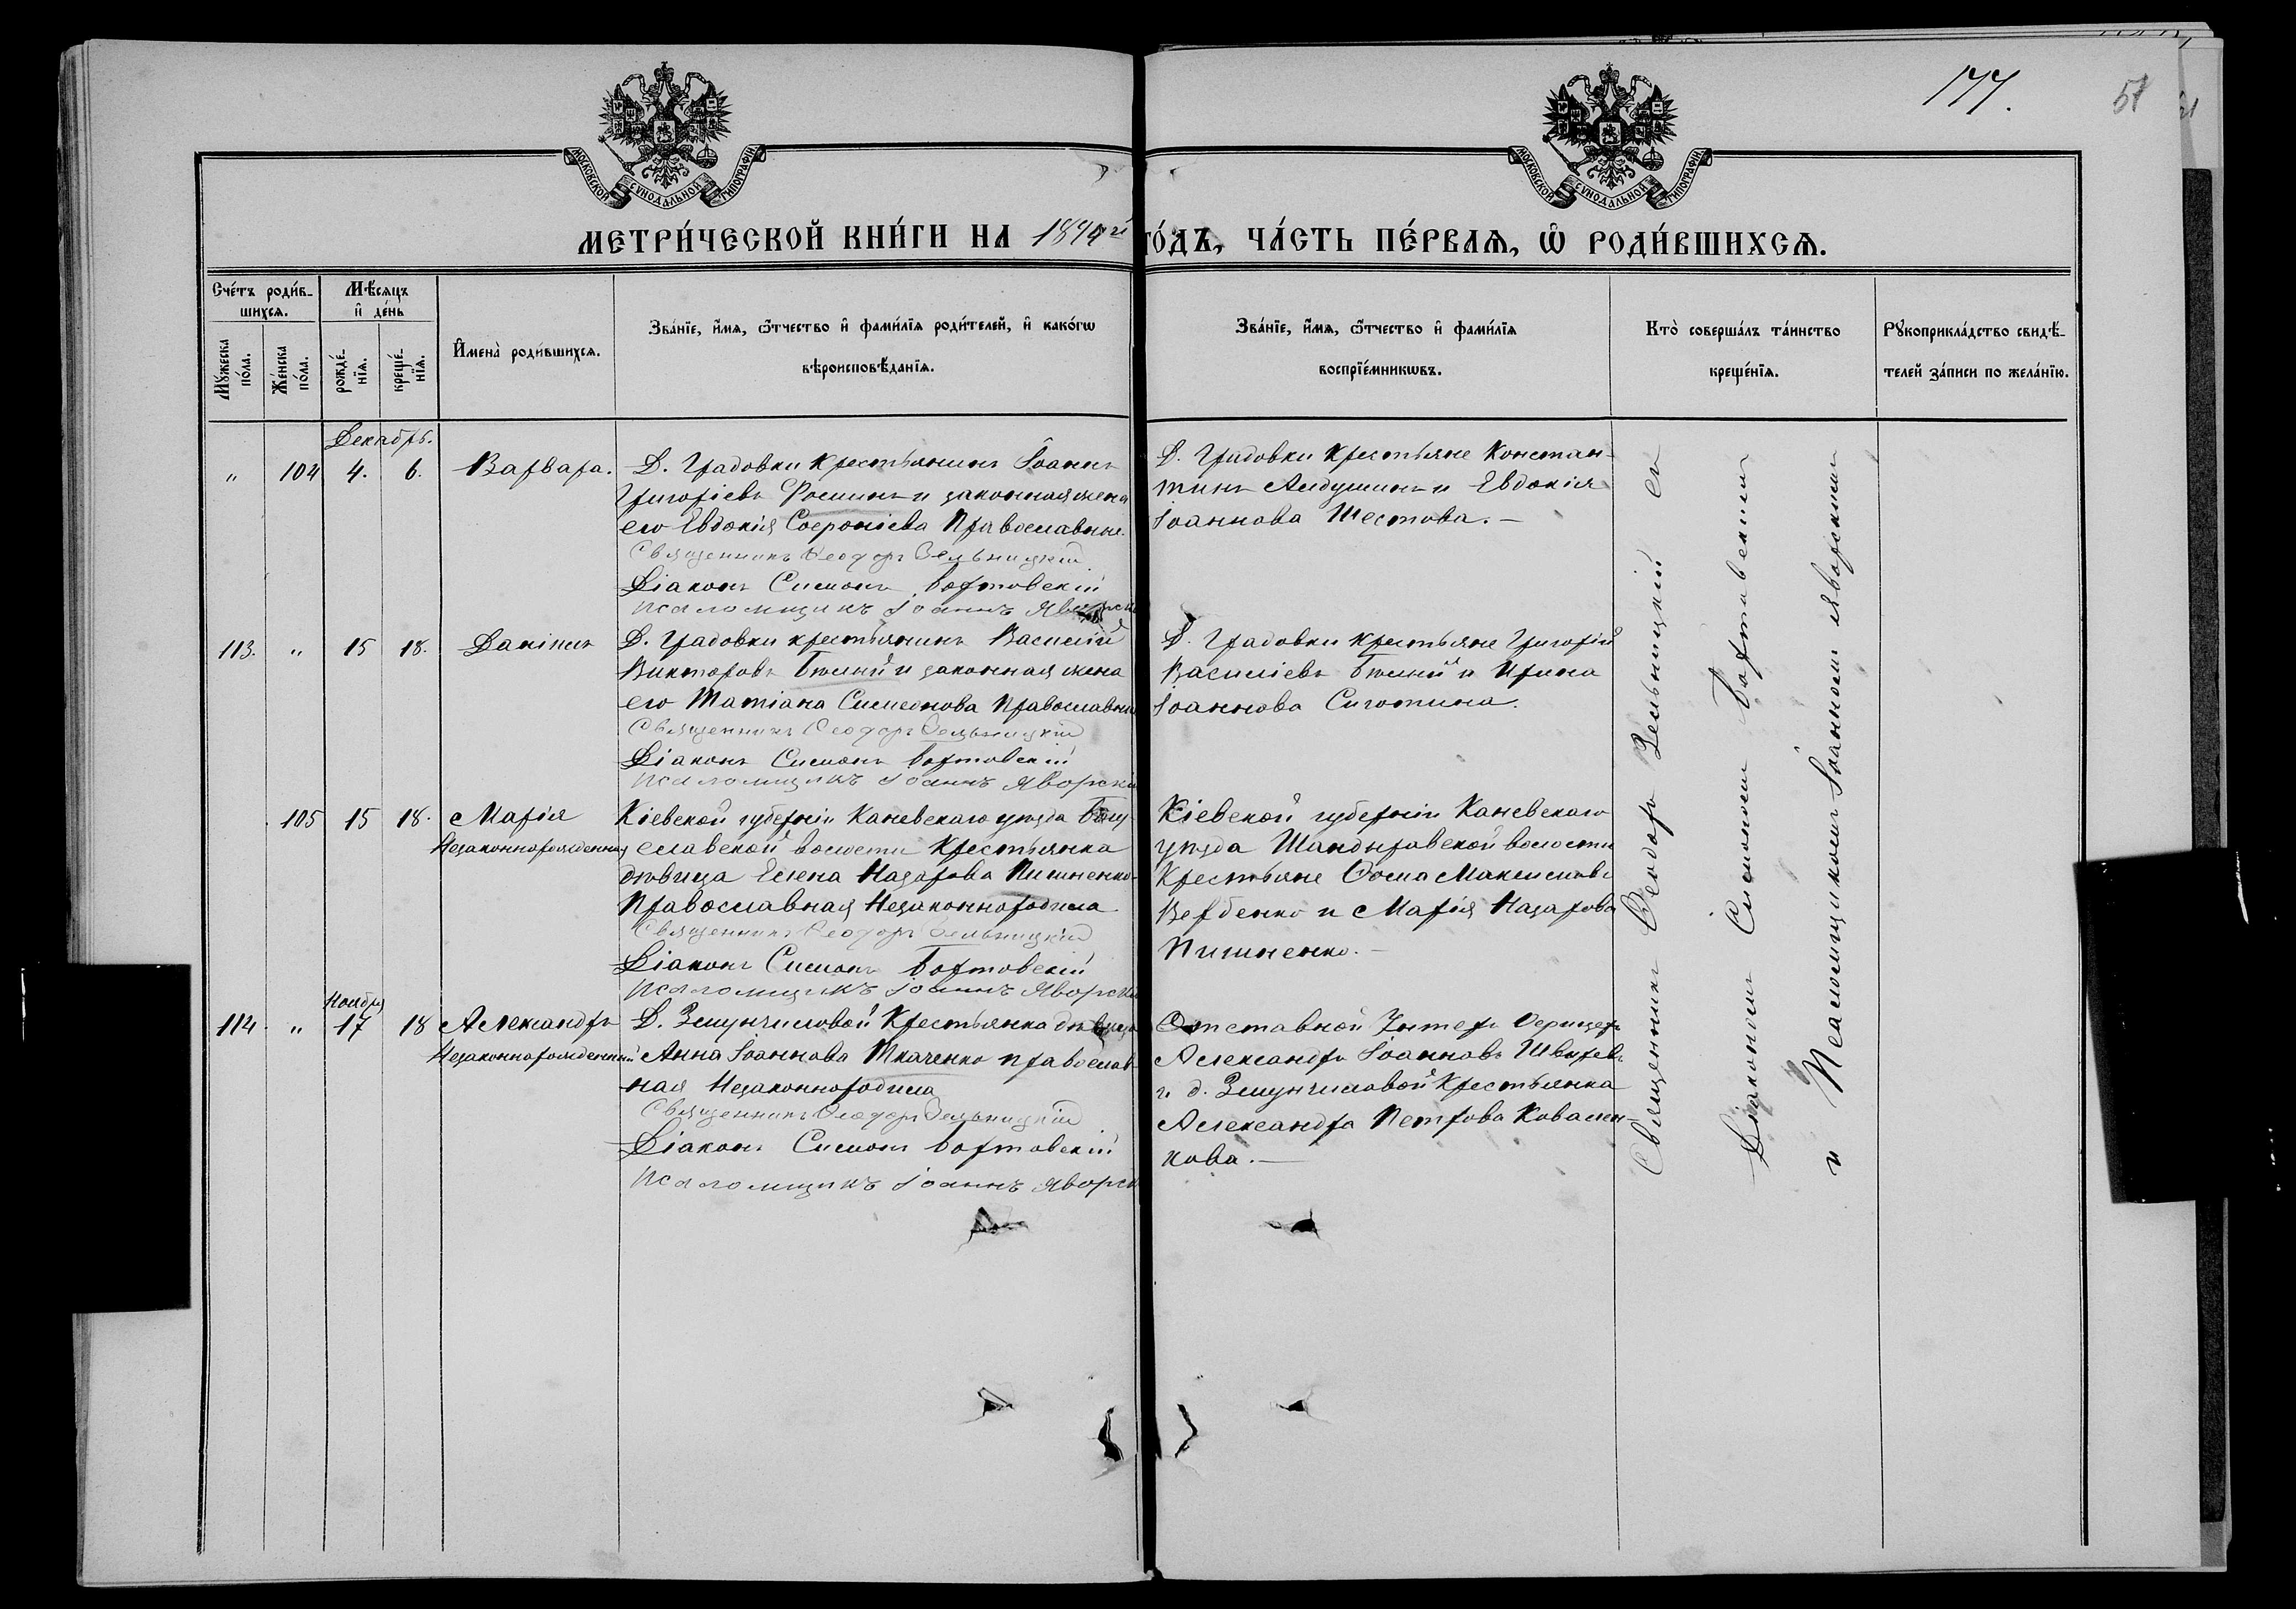 177.
51
МОСКОВСКОЙ СѴНОДАЛЬНОЙ ТИПОГРАФІИ
МОСКОВСКОЙ СѴНОДАЛЬНОЙ ТИПОГРАФІИ
МЕТРИ́ЧЕСКОЙ КНИ́ГИ НА
ГО́ДЪ, ЧА́СТЬ ПЕ́РВАѦ, Ѡ҆ РОДИ́ВШИХСѦ.
Сче́тъ роди́в-
шихсѧ.
Мѣ́сѧцъ
и҆ де́нь
Мꙋ́жеска по́ла.
Же́нска по́ла.
рожде́-нїѧ.
креще́-нїѧ.
И҆мена̀ роди́вшихсѧ.
Зва́нїе, и҆́мѧ, ѻ҆́тчество и҆ фами́лїѧ роди́телей, и҆ како́гѡ
вѣроисповѣ́данїѧ.
Зва́нїе, и҆́мѧ, ѻ҆́тчество и҆ фами́лїѧ
воспрїе́мникѡвъ.
Кто̀ соверша́лъ та́инство
креще́нїѧ.
Рꙋкоприкла́дство свидѣ́-
телей за́писи по жела́нїю.
Декабрь.
" 104 4. 6. Варвара.
Д. Градовки крестьянинъ Іоаннъ
Григоріевъ Фоминъ и законная жена
его Евдокія Софроніева Православные.
Священникъ Ѳеодоръ Зельницкій
Діаконъ Симонъ Бортовскій
Псаломщикъ Іоаннъ Яворскій
Д. Градовки Крестьяне Констан-
тинъ и Евдокія
Іоаннова Шестова.—
113. " 15 18. Даніилъ
Д. Градовки крестьянинъ Василій
Викторовъ Бѣлый и законная жена
его Татіана Симеонова Православные
Священникъ Ѳеодоръ Зельницкій
Діаконъ Симонъ Бортовскій
Псаломщикъ Іоаннъ Яворскій
Д. Градовки Крестьяне Григорій
Василіевъ Бѣлый и Ирина
Іоаннова Сиротина.
105 15 18. Марія
Незаконнорожденная
Кіевской губерніи Каневскаго уѣзда
славской волости Крестьянка
дѣвица Елена Назарова Пишненко-
Православная Незаконнородила
Священникъ Ѳеодоръ Зельницкій
Діаконъ Симонъ Бортовскій
Псаломщикъ Іоаннъ Яворскій
Кіевской губерніи Каневскаго
уѣзда Шандыровской волости
Крестьяне Ѳома Максимовъ
Вербенко и Марія Назарова
Пишненко.—
Ноября
114 " 17 18 Александръ
Незаконнорожденный
Д. Змунчиловой Крестьянка дѣвица
Анна Іоаннова Ткаченко православ-
ная Незаконнородила
Священникъ Ѳеодоръ Зельницкій
Діаконъ Симонъ Бортовскій
Псаломщикъ Іоаннъ Яворскій
Отставной Унтеръ Офицеръ
Александръ Іоанновъ
и д. Змунчиловой Крестьянка
Александра Петрова Ковален-
кова.—
Священникъ Ѳеодоръ Зельницкій съ
Діакономъ Симономъ Бортовскимъ
и Псаломщикомъ Іоанномъ Яворскимъ